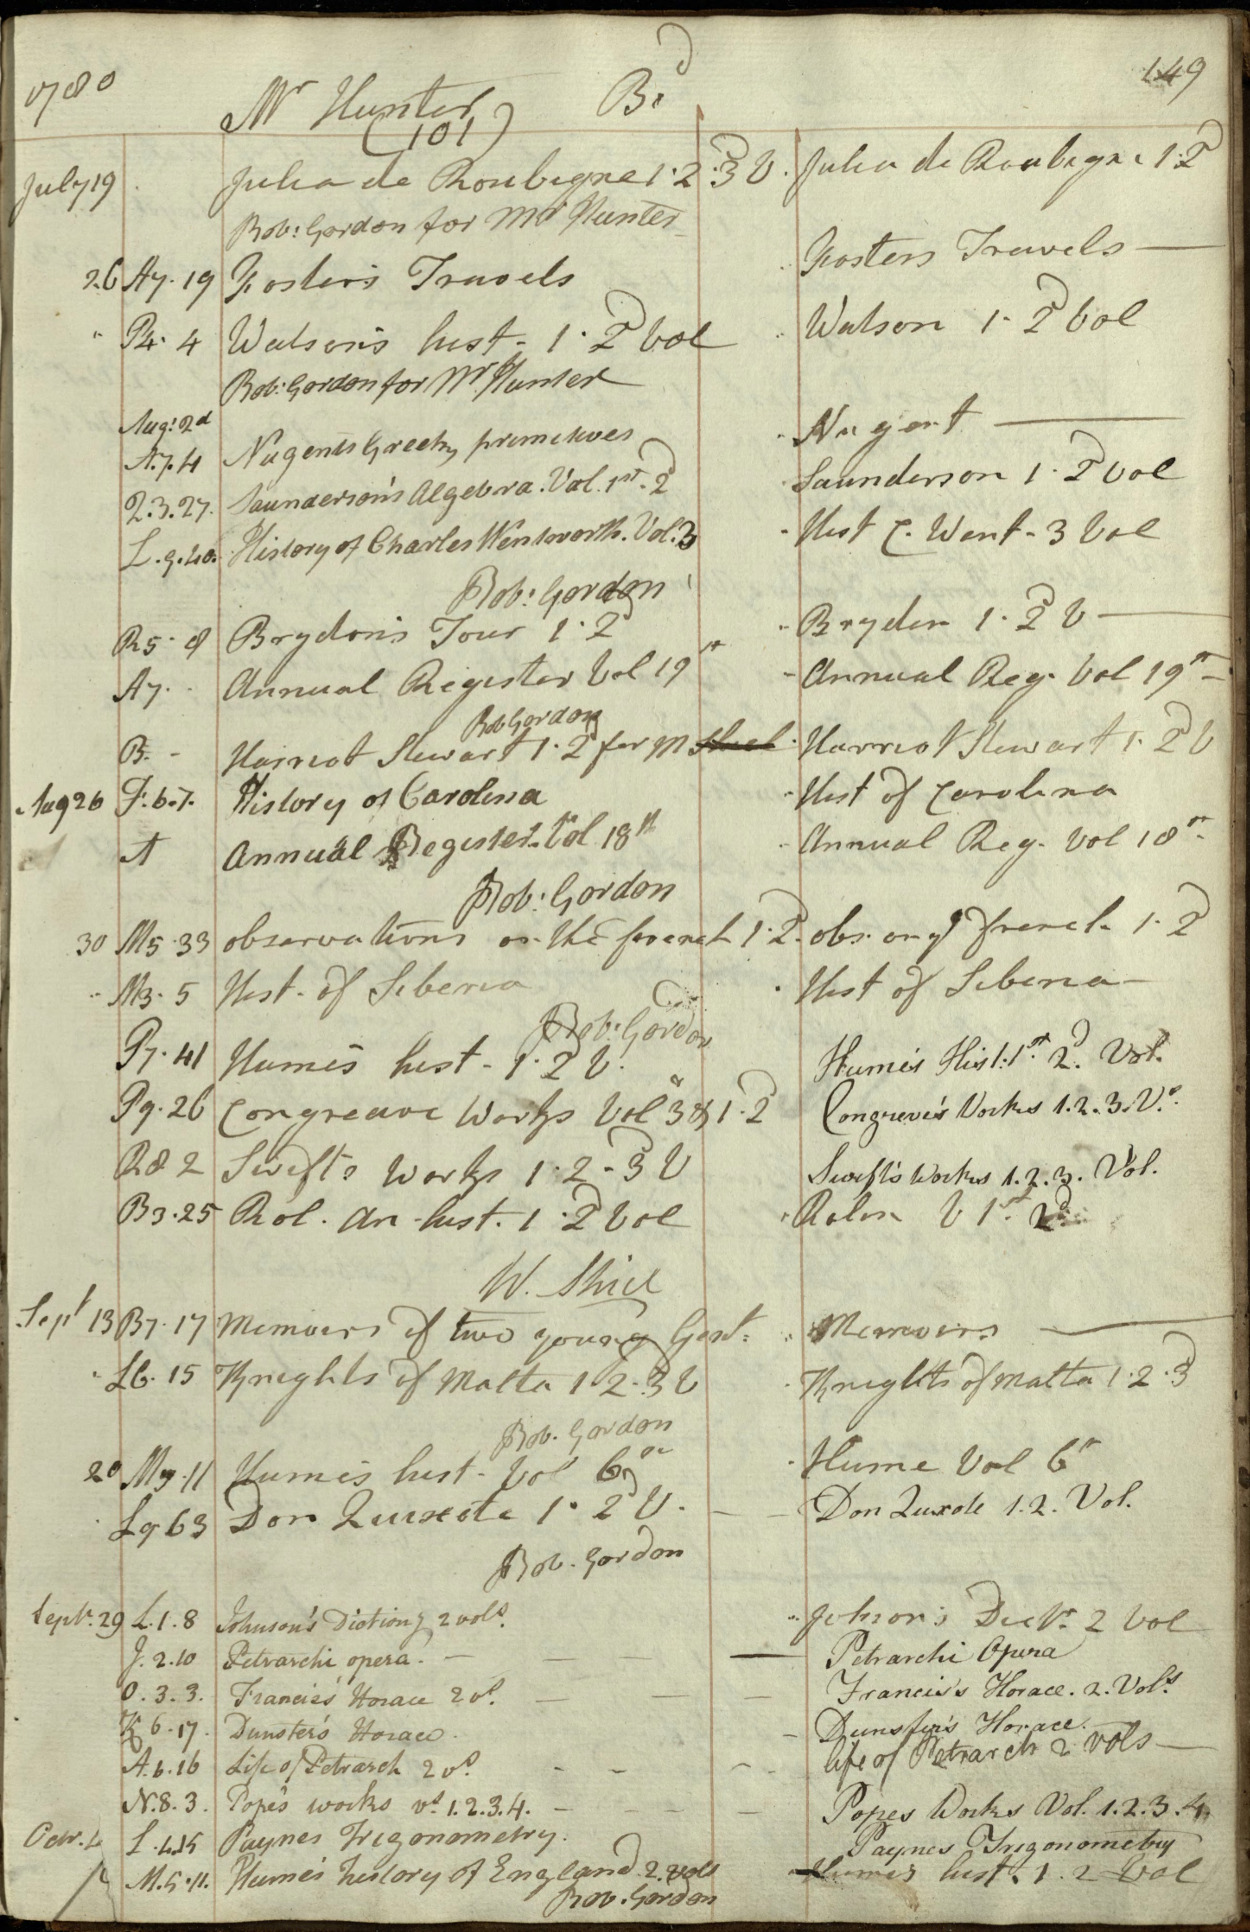 1780 Mr Hunter Bd 149
(101)
July 19 Julia de Roubigne 1.2.3 V. Julia de Roubigne 1.2
Rob: Gordon for Mr Hunter
26 A7.19 Fosters Travels Fosters Travels
P4.4 Watson's hist. 1.2 Vol Watson 1.2 Vol
Rob: Gordon for Mr Hunter
Aug: 2d
A.7.4 Nugents Greek primitives Nugent
2.3.27. Saunderson's Algebra. Vol. 1st. 2 Saunderson 1.2 Vol
L.9.40. History of Charles Wentworth. Vol. 3 Hist C. Went. 3 Vol
Rob: Gordon
R5.8 Brydon's Tour 1.2 Brydon 1.2 V
A7. Annual Register Vol 19th Annual Reg. Vol 19th
Rob Gordon
B. Harriot Stewart 1.2 for M Harriot Stewart 1.2 V
Aug 26 F.6.7. History of Carolina Hist of Carolina
A Annual Register Vol 18th Annual Reg. Vol 18th
Rob: Gordon
30 M5.33 observations on the french 1.2. obs. on ye french 1.2
M3.5 Hist. of Siberia Hist of Siberia
Rob: Gordon
P7.41 Humes hist. 1.2 V. Hume's Hist: 1st 2d. Vol.
P9.26 Congreave Works Vol 3d & 1.2 Congreve's Works 1.2.3. Vs.
R8 2 Swifts Works 1.2.3 V Swift's Works 1.2.3. Vol.
B3.25 Rol. An. hist. 1.2 Vol Rolin V 1st 2d
W. Shiel
Sept 13 B7.17 Memoirs of two young Gent: Memoirs
L6.15 Knights of Malta 1.2.3 V Knights of Malta 1.2.3
Rob. Gordon
20 M9.11 Humes hist. Vol 6th Hume Vol 6th
L9 63 Don Quixote 1.2 V. Don Quixote 1.2. Vol.
Rob. Gordon
Septr. 29 L.1.8 Johnson's Dictiony 2 vols. Johson's Dictr. 2 Vol
J.2.10 Petrarchi opera. Petrarchi Opera
O.3.3. Francis's Horace 2 vl. Francis's Horace. 2. Vols.
K6.17. Dunster's Horace. Dunster's Horace.
A.6.16 Life of Petrarch 2 vs. life of Petrarch 2 vols
N.8.3. Pope's works vs. 1.2.3.4. Popes Works Vol. 1.2.3.4
Octr. 4 L.4.15 Paynes Trigonometry. Paynes Trigonometry
M.5.11. Hume's history of England 2. vols Humes hist. 1.2 Vol
Rob. Gordon